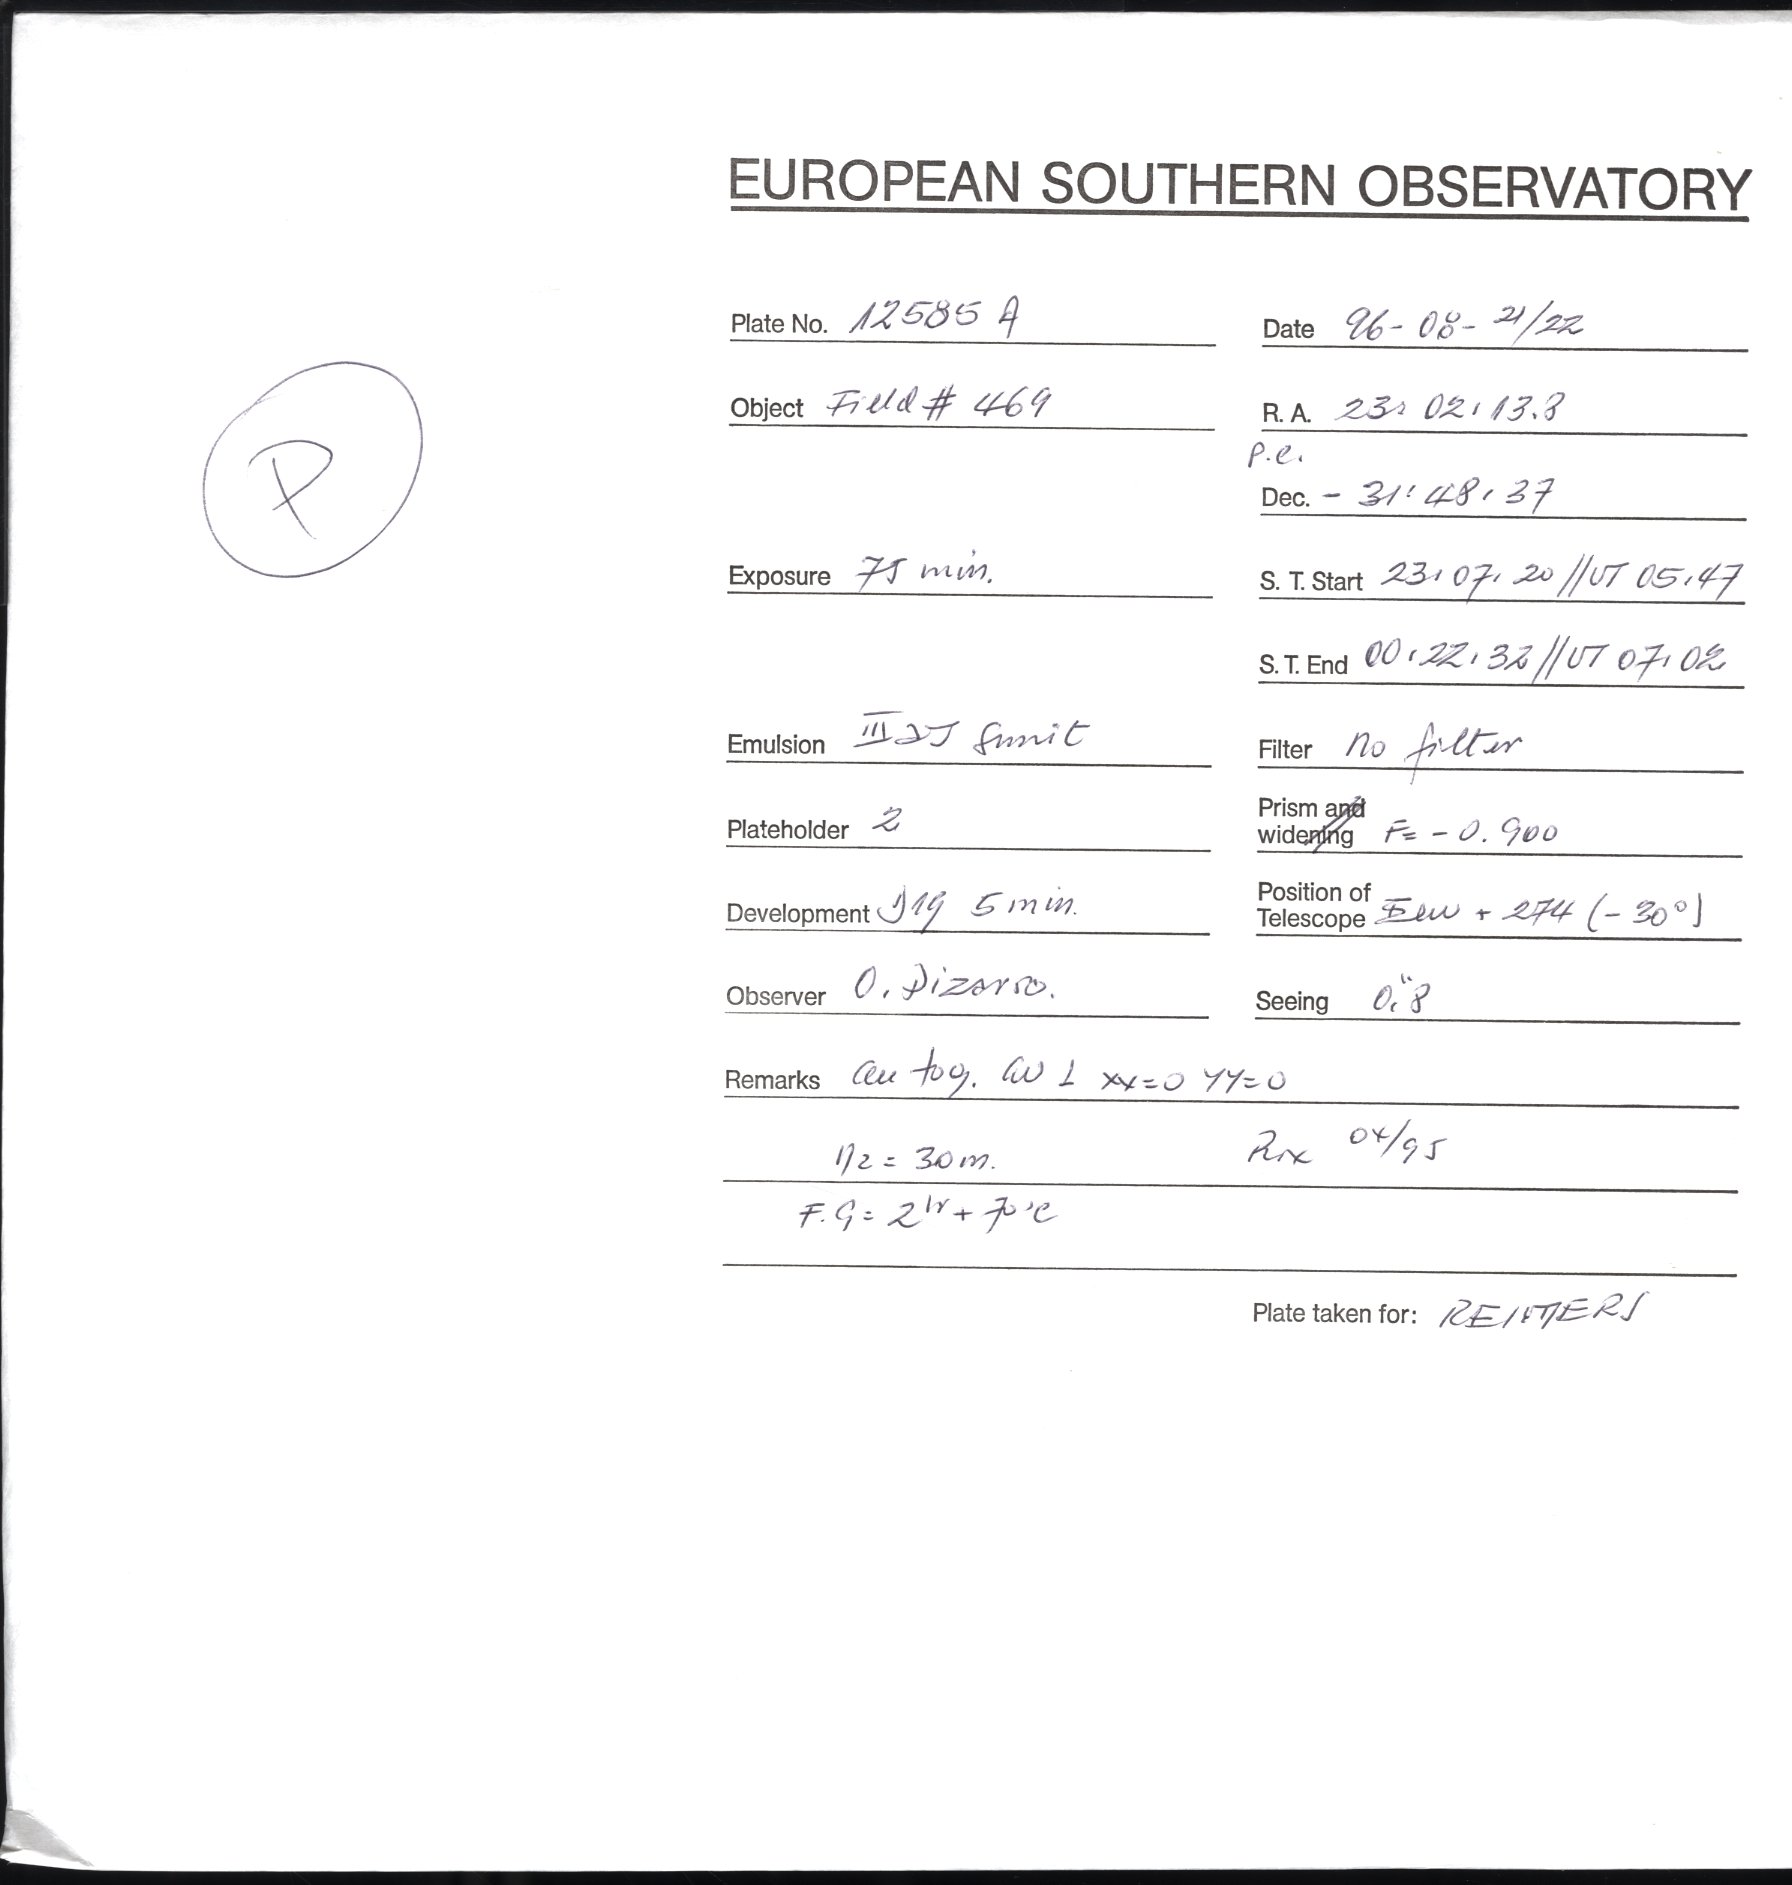 EUROPEAN SOUTHERN OBSERVATORY
Plate No. 12585 A
Date 96-08-21/22
Object Field # 469
R. A. 23: 02: 13.3
P
p.e.
Dec. - 31: 48: 37
Exposure 75 min.
S. T. Start 23: 07: 20 // UT 05:47
S. T. End 00:22:32 // UT 07:02
Emulsion IIIaJ
Filter no filter
Prism and widening F= - 0.900
Plateholder 2
Development D19 5 min.
Position of Telescope + 274 (- 30°)
Observer O. Pizarro.
Seeing 0."8
Remarks xx=0 YY=0
N2 = 30 m.
04/95
F.G = 2hr + 70°C
Plate taken for: REIMERS